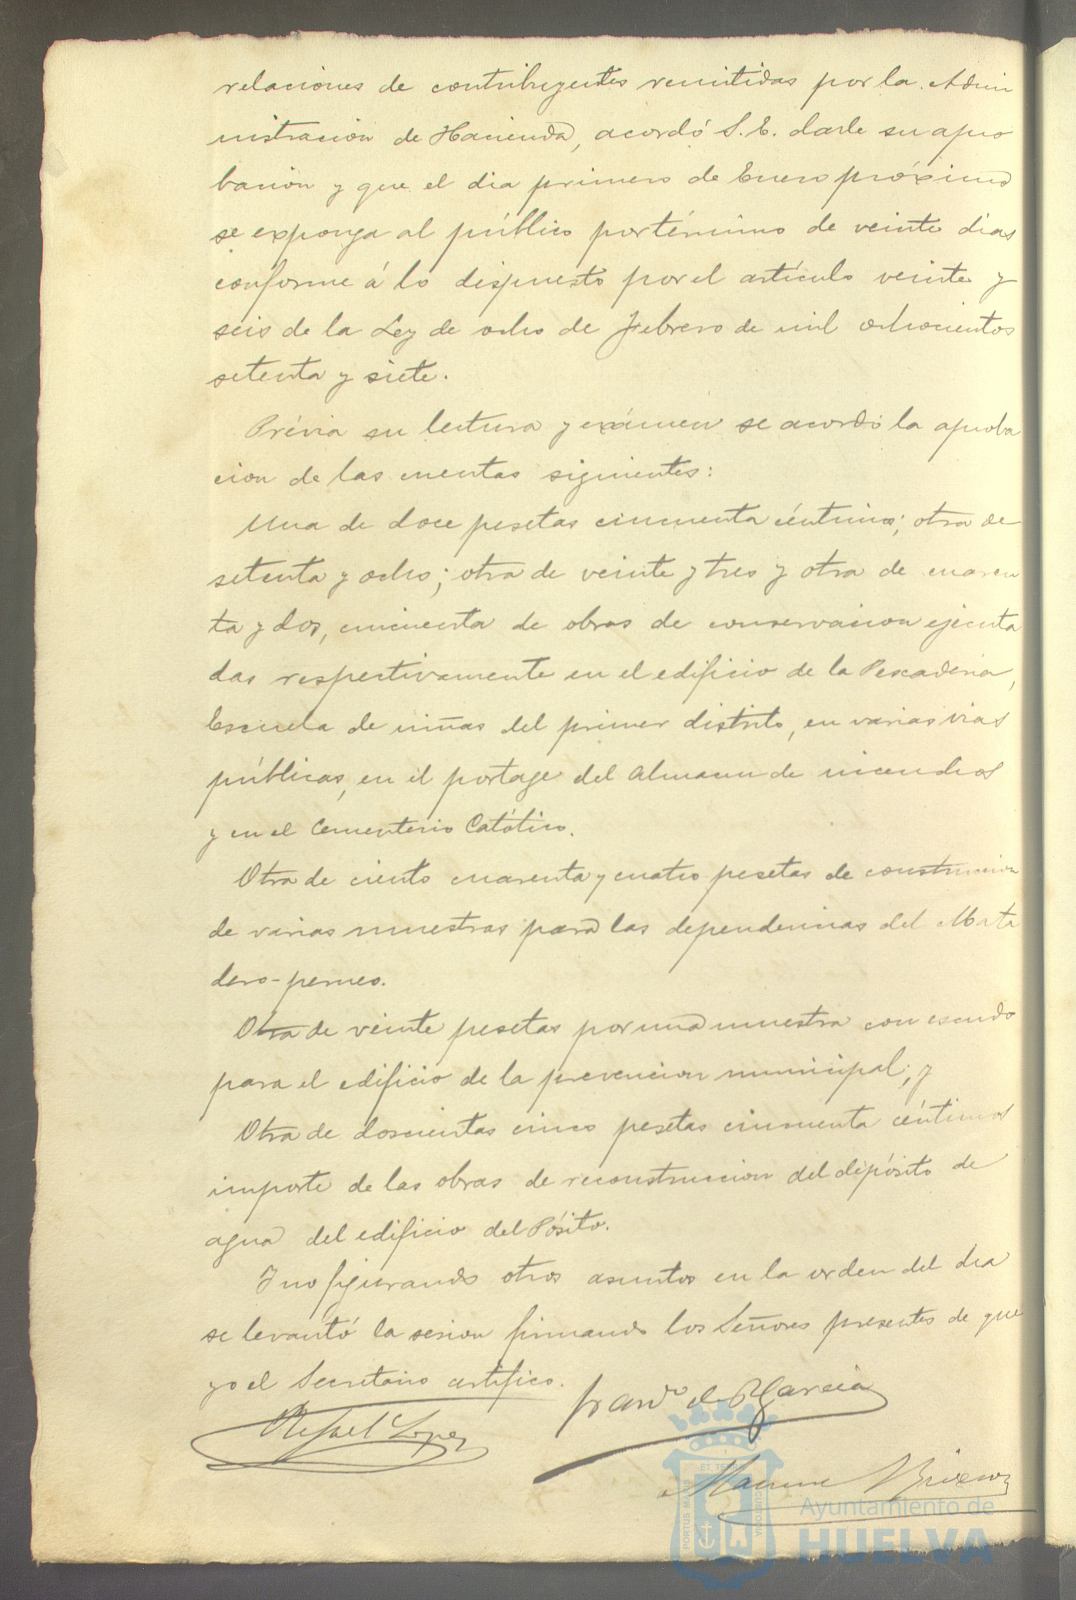 relaciones de contribuyentes remitidas por la Admi
nistracion de Hacienda, acordó S. E. darle su apro
bacion y que el dia primero de Enero próximo
se exponga al público por término de veinte dias
conforme á lo dispuesto por el artículo veinte y
seis de la Ley de ocho de Febrero de mil ochocientos
setenta y siete.
Prévia su lectura y exámen se acordó la aproba
cion de las cuentas siguientes:
Una de doce pesetas cincuenta céntimos; otra de
setenta y ocho; otra de veinte y tres y otra de cuaren
ta y dos, cincuenta de obras de conservacion ejecuta
das respectivamente en el edificio de la Pescaderia,
Escuela de niñas del primer distrito, en varias vias
públicas, en el portage del Almacen de incendios
y en el Cementerio Católico.
Otra de ciento cuarenta y cuatro pesetas de construccion
de varias muestras para las dependencias del Mata
dero-perneo.
Otra de veinte pesetas por una muestra con escudo
para el edificio de la prevencion municipal; y
Otra de doscientas cinco pesetas cincuenta céntimos
importe de las obras de reconstruccion del depósito de
agua del edificio del Pósito.
Y no figurando otros asuntos en la orden del dia
se levantó la sesion firmando los Señores presentes de que
yo el Secretario certifico.
Franco de P. Garcia
Rafael Lopez
PORTUS MARIS ET TERRAE CUSTODIA
Ayuntamiento de
HUELVA